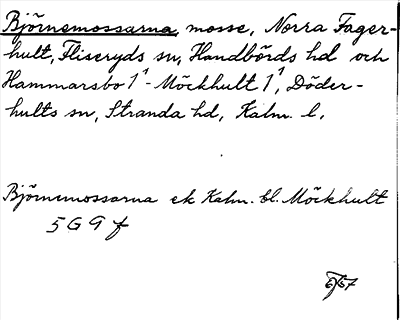 Björnemossarna, mosse, Norra Fager-
hult, Fliseryds sn, Handbörds hd och
Hammarsbo 1¹ - Möckhult 1¹, Döder-
hults sn, Stranda hd, Kalm. l.
Björnemossarna ek Kalm. bl. Möckhult
5 G 9 f